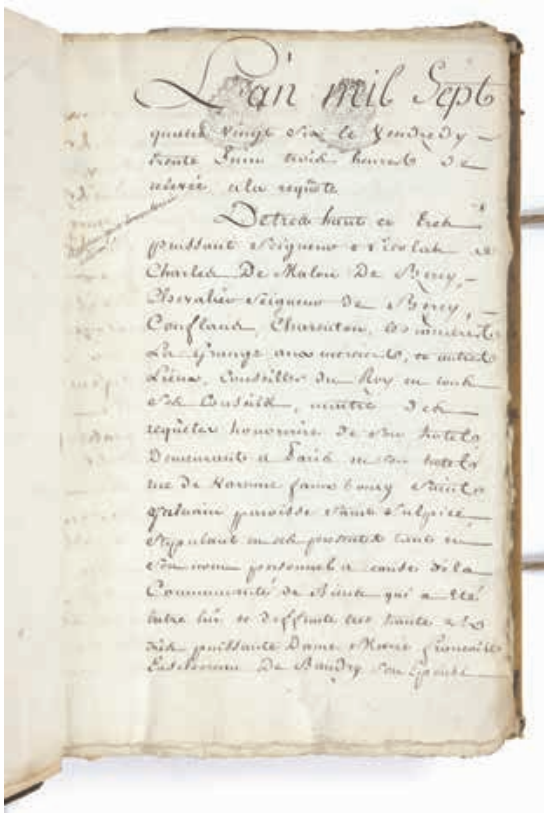 L'an mil Sept
quatre vingt Six le Vendredy
trente heures de
relevée, a la requête
De tres haut et tres
puissant Seigneur Nicolas
Charles De Malon De Bercy,
Chevalier Seigneur De Bercy,
Conflans, Charenton, les carrieres
La Grange aux merciers, et autres
Lieux, Conseiller du Roy en tous
Ses Conseils, maitre des
requêtes honoraire de son hotel
Demeurant a Paris en son hotel
rue de Varenne faux bourg Saint
Germain paroisse Saint Sulpice,
Stypulant en ces presentes tant en
Son nom personnel a cause de la
Communauté de Biens qui a été
Entre lui et deffunte tres haute et
puissante Dame Marie Françoise
De Baudry Son Epouse